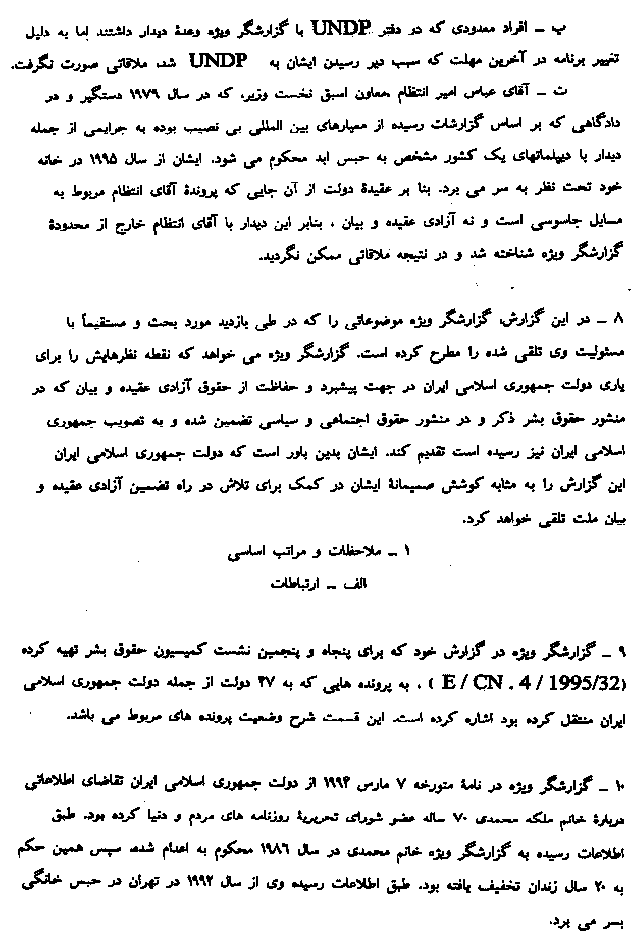 ب ـ افراد معدودی که در دفتر UNDP با گزارشگر ویژه وعدهٔ دیدار داشتند اما به دلیل
تغییر برنامه در آخرین مهلت که سبب دیر رسیدن ایشان به UNDP شد، ملاقاتی صورت نگرفت.
ت ـ آقای عباس امیر انتظام معاون اسبق نخست وزیر، که در سال ۱۹۷۹ دستگیر و در
دادگاهی که بر اساس گزارشات رسیده از معیارهای بین المللی بی نصیب بوده به جرایمی از جمله
دیدار با دیپلماتهای یک کشور مشخص به حبس ابد محکوم می شود. ایشان از سال ۱۹۹۵ در خانه
خود تحت نظر به سر می برد. بنا بر عقیدهٔ دولت از آن جایی که پروندهٔ آقای انتظام مربوط به
مسایل جاسوسی است و نه آزادی عقیده و بیان ، بنابر این دیدار با آقای انتظام خارج از محدودهٔ
گزارشگر ویژه شناخته شد و در نتیجه ملاقاتی ممکن نگردید.
۸ ـ در این گزارش، گزارشگر ویژه موضوعاتی را که در طی بازدید مورد بحث و مستقیماً با
مسئولیت وی تلقی شده را مطرح کرده است. گزارشگر ویژه می خواهد که نقطه نظرهایش را برای
یاری دولت جمهوری اسلامی ایران در جهت پیشبرد و حفاظت از حقوق آزادی عقیده و بیان که در
منشور حقوق بشر ذکر و در منشور حقوق اجتماعی و سیاسی تضمین شده و به تصویب جمهوری
اسلامی ایران نیز رسیده است تقدیم کند. ایشان بدین باور است که دولت جمهوری اسلامی ایران
این گزارش را به مثابه کوشش صمیمانهٔ ایشان در کمک برای تلاش در راه تضمین آزادی عقیده و
بیان ملت تلقی خواهد کرد.
۱ ـ ملاحظات و مراتب اساسی
الف ـ ارتباطات
۹ ـ گزارشگر ویژه در گزارش خود که برای پنجاه و پنجمین نشست کمیسیون حقوق بشر تهیه کرده
(E / CN . 4 / 1995/32 ) ، به پرونده هایی که به ۲۷ دولت از جمله دولت جمهوری اسلامی
ایران منتقل کرده بود اشاره کرده است. این قسمت شرح وضعیت پرونده های مربوط می باشد.
۱۰ ـ گزارشگر ویژه در نامهٔ متورخه ۷ مارس ۱۹۹۴ از دولت جمهوری اسلامی ایران تقاضای اطلاعاتی
دربارهٔ خانم ملکه محمدی ۷۰ ساله عضو شورای تحریریهٔ روزنامه های مردم و دنیا کرده بود. طبق
اطلاعات رسیده به گزارشگر ویژه خانم محمدی در سال ۱۹۸۶ محکوم به اعدام شده، سپس همین حکم
به ۲۰ سال زندان تخفیف یافته بود. طبق اطلاعات رسیده وی از سال ۱۹۹۲ در تهران در حبس خانگی
بسر می برد.